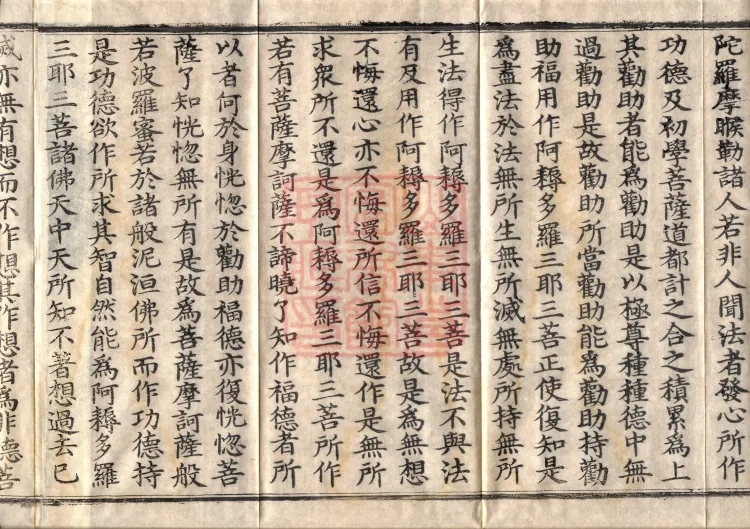 陀羅摩睺勒諸人若非人聞法者發心所作
功德及初學菩薩道都計之合之積累為上
其勸助者能為勸助是以極尊種種德中無
過勸助是故勸助所當勸助能為勸助持勸
助福用作阿耨多羅三耶三菩正使復知是
為盡法於法無所生無所滅無處所持無所
生法得作阿耨多羅三耶三菩是法不與法
有反用作阿耨多羅三耶三菩故是為無想
不悔還心亦不悔還所信不悔還作是無所
求眾所不還是為阿耨多羅三耶三菩所作
若有菩薩摩訶薩不諦曉了知作福德者所
以者何於身恍惚於勸助福德亦復恍惚菩
薩了知恍惚無所有是故為菩薩摩訶薩般
若波羅蜜若於諸般泥洹佛所而作功德持
是功德欲作所求其智自然能為阿耨多羅
三耶三菩諸佛天中天所知不著想過去已
滅亦無有想而不作想其作想者為非德菩